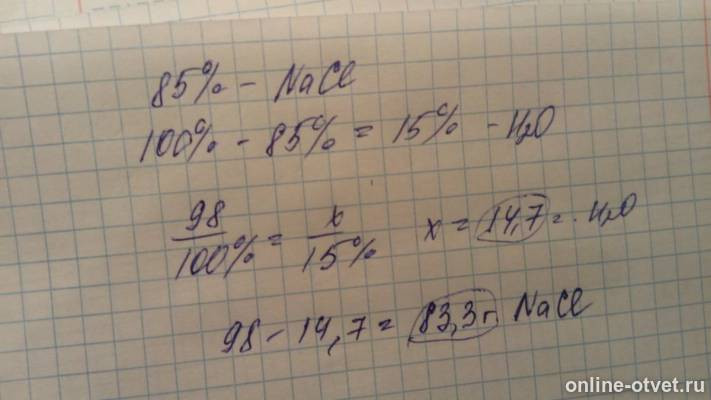 85% - NaCl
100% - 85% = 15% - H2O
98/100% = x/15% x = 14,7 = H2O
98 - 14,7 = 83,3г NaCl
online-otvet.ru